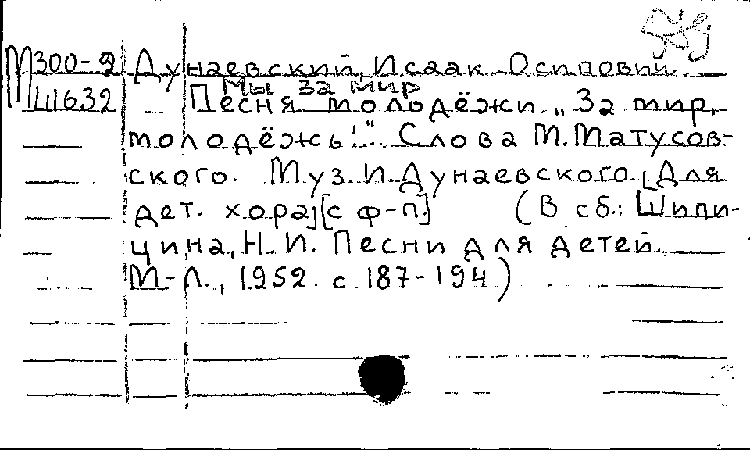 М300-2 Дунаевский, Исаак Осипович.
Мы за мир
Ш632 Песня молодёжи „За мир,
молодёжь!" Слова М.Матусов-
ского. Муз. И. Дунаевского. [Для
дет. хора] [с ф-п.] (В сб.: Шипи-
цина, Н. И. Песни для детей.
М.-Л., 1952. с. 187-194)